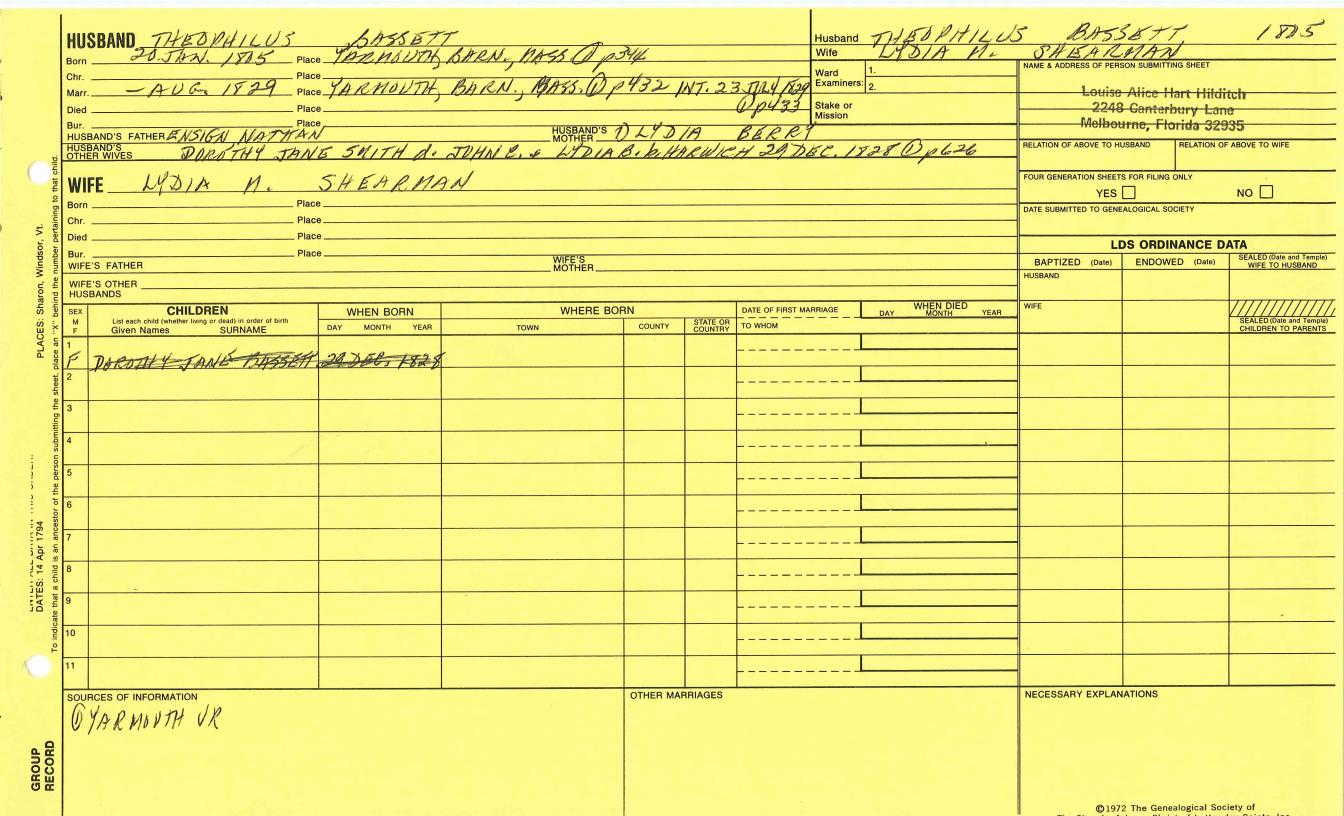 HUSBAND THEOPHILUS BASSETT
Born 20 JAN. 1805 Place YARMOUTH, BARN., MASS. ① p346
Chr. Place
Marr. — AUG. 1829 Place YARMOUTH, BARN., MASS. ① p432 INT. 23 JULY 1829
① p433
Died Place
Bur. Place
HUSBAND'S FATHER ENSIGN NATHAN HUSBAND'S MOTHER 1) LYDIA BERRY
HUSBAND'S OTHER WIVES DOROTHY JANE SMITH d. JOHN C. & LYDIA B. b. HARWICH 29 DEC. 1828 ① p626
WIFE LYDIA M. SHEARMAN
Born Place
Chr. Place
Died Place
Bur. Place
WIFE'S FATHER WIFE'S MOTHER
WIFE'S OTHER HUSBANDS
Husband THEOPHILUS BASSETT 1805
Wife LYDIA M. SHEARMAN
Ward Examiners: 1.
2.
Stake or Mission
NAME & ADDRESS OF PERSON SUBMITTING SHEET
Louise Alice Hart Hilditch
2248 Canterbury Lane
Melbourne, Florida 32935
RELATION OF ABOVE TO HUSBAND RELATION OF ABOVE TO WIFE
FOUR GENERATION SHEETS FOR FILING ONLY
YES NO
DATE SUBMITTED TO GENEALOGICAL SOCIETY
LDS ORDINANCE DATA
BAPTIZED (Date) ENDOWED (Date) SEALED (Date and Temple) WIFE TO HUSBAND
HUSBAND
WIFE
SEALED (Date and Temple) CHILDREN TO PARENTS
SEX M F
CHILDREN
List each child (whether living or dead) in order of birth
Given Names SURNAME
WHEN BORN
DAY MONTH YEAR
WHERE BORN
TOWN COUNTY STATE OR COUNTRY
DATE OF FIRST MARRIAGE
TO WHOM
WHEN DIED
DAY MONTH YEAR
1
F DOROTHY JANE BASSETT 29 DEC. 1828
2
3
4
5
6
7
8
9
10
11
SOURCES OF INFORMATION
① YARMOUTH VR
OTHER MARRIAGES
NECESSARY EXPLANATIONS
©1972 The Genealogical Society of
PLACES: Sharon, Windsor, Vt.
DATES: 14 Apr 1794
To indicate that a child is an ancestor of the person submitting the sheet, place an "X" behind the number pertaining to that child.
GROUP RECORD